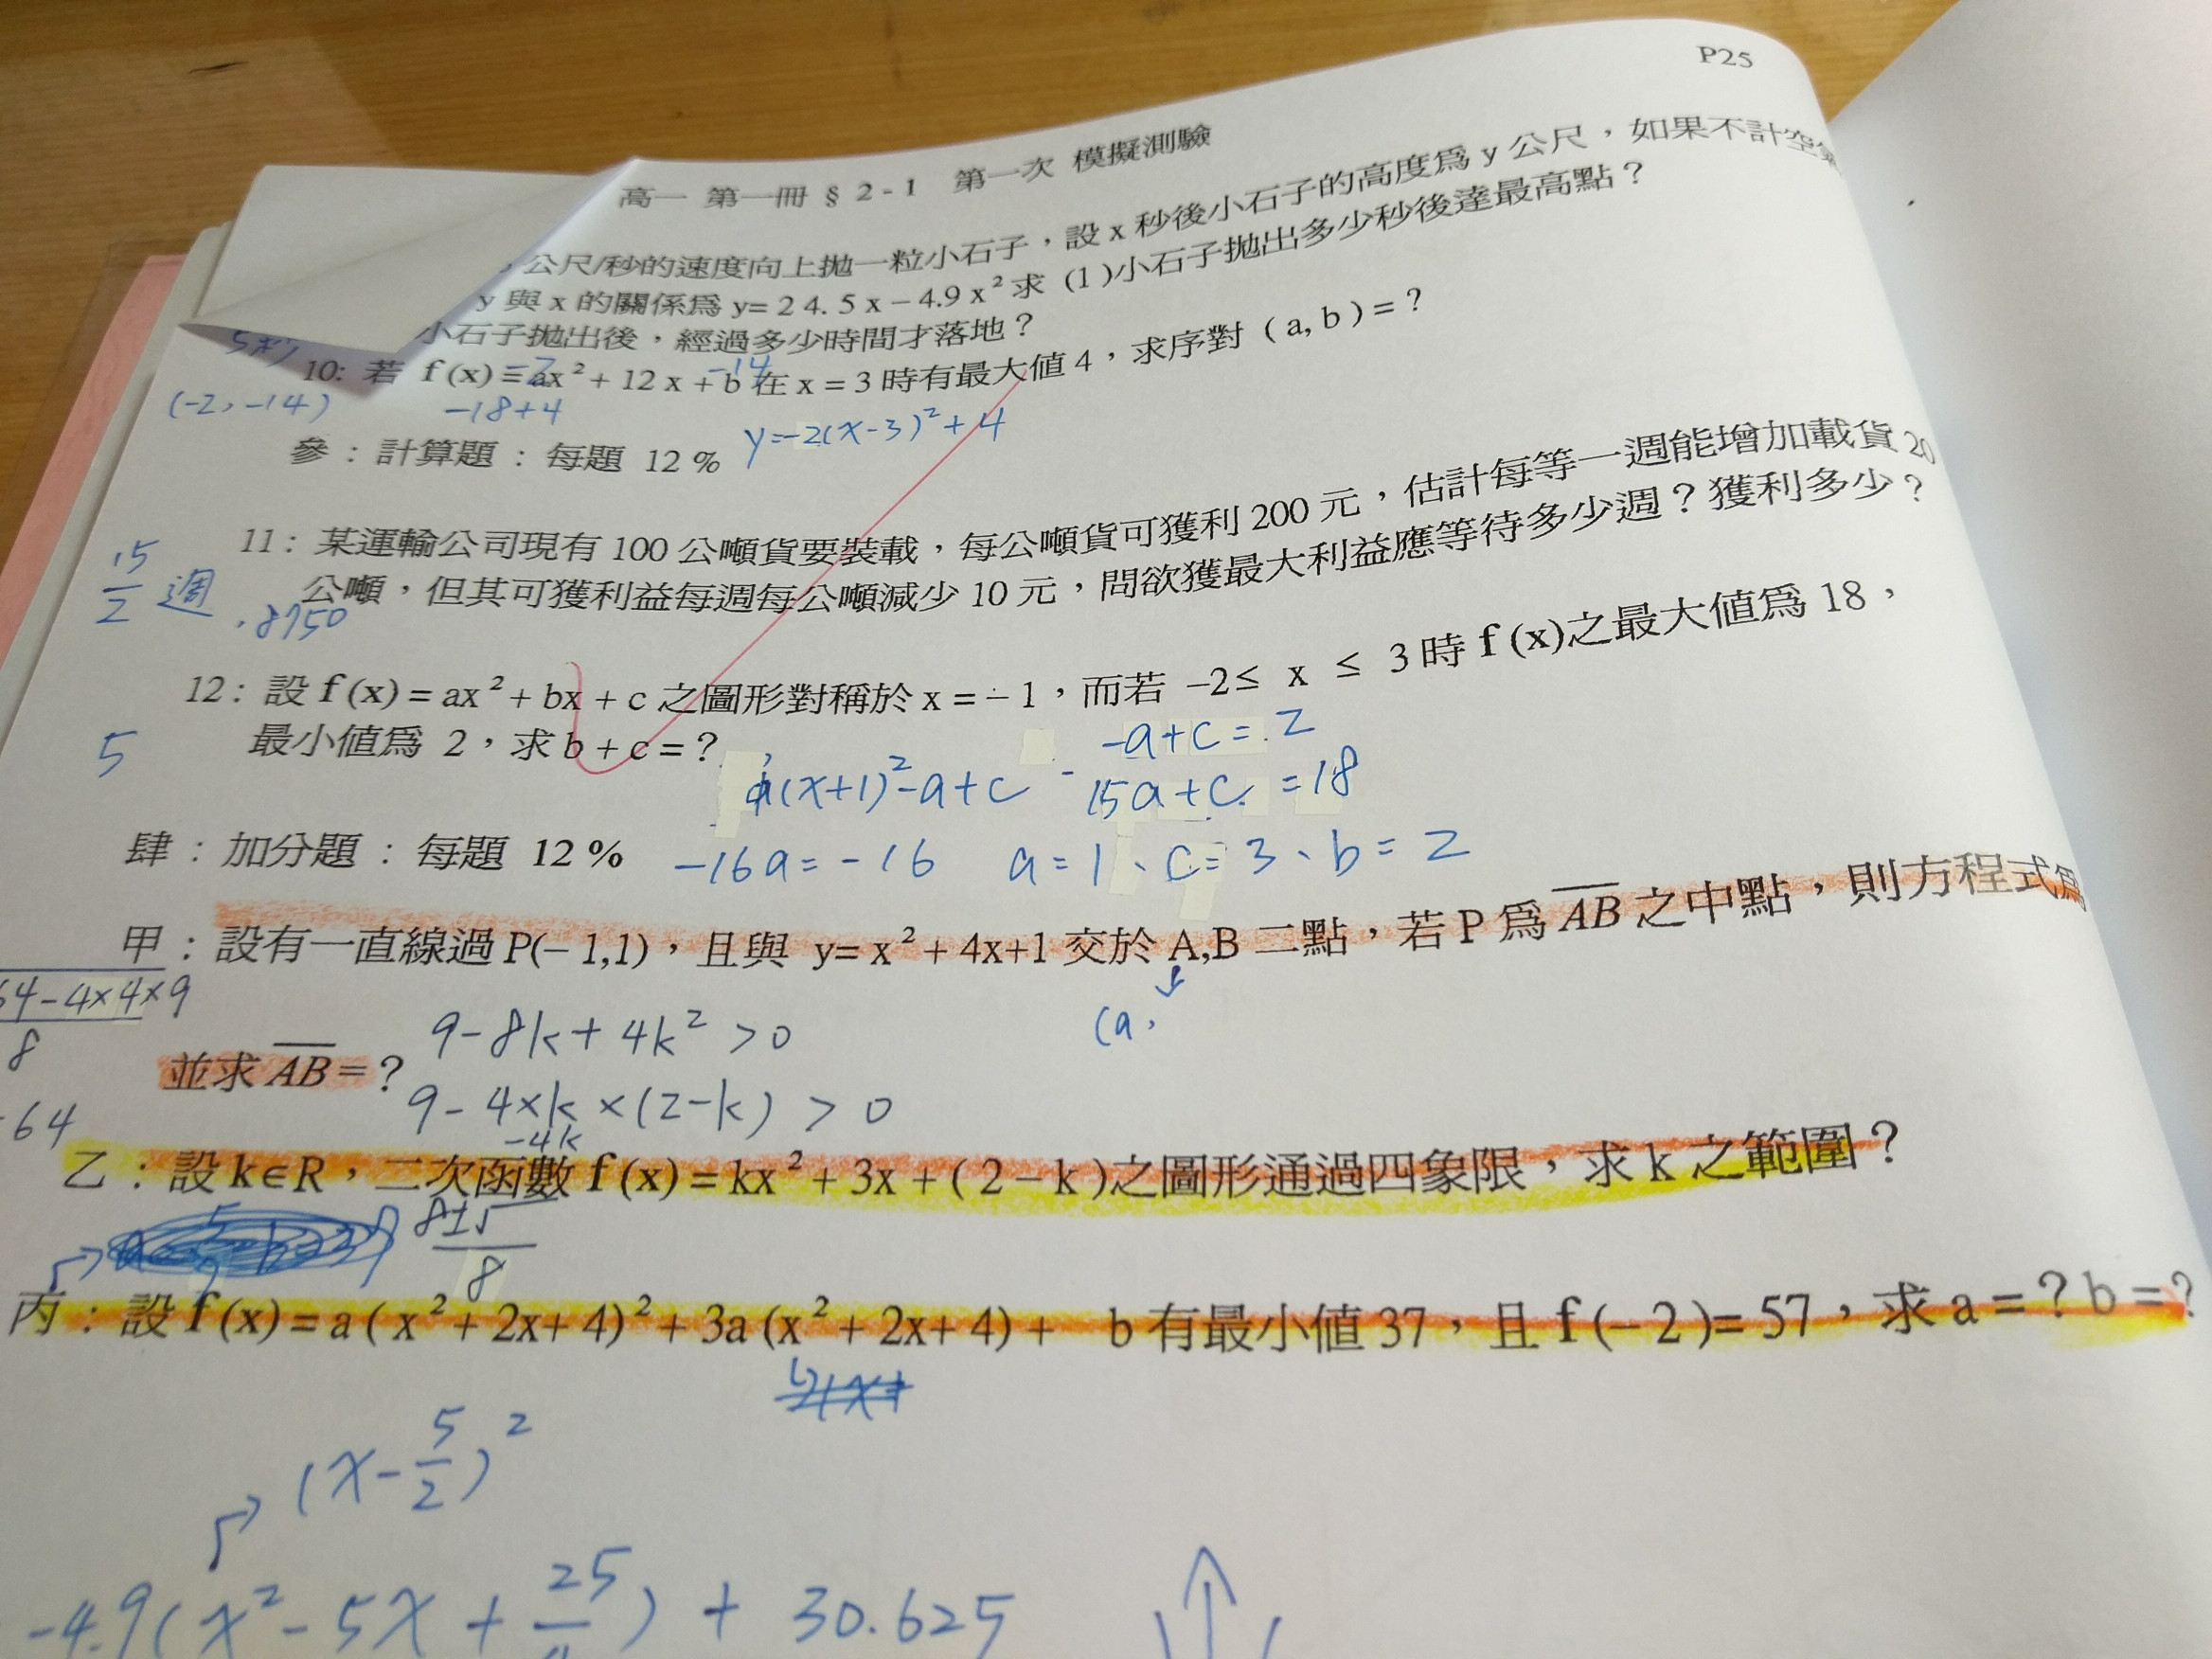 P25
高一 第一冊 § 2 - 1 第一次 模擬測驗
公尺/秒的速度向上拋一粒小石子，設 x 秒後小石子的高度為 y 公尺，如果不計空
y 與 x 的關係為 y= 2 4. 5 x − 4.9 x² 求 (1 )小石子拋出多少秒後達最高點？
小石子拋出後，經過多少時間才落地？
5秒
10: 若 f (x) = ax² + 12 x + b 在 x = 3 時有最大值 4，求序對 ( a, b ) = ?
-2 -14
(-2, -14)
-18+4
y=-2(x-3)²+4
參：計算題：每題 12 %
11: 某運輸公司現有 100 公噸貨要裝載，每公噸貨可獲利 200 元，估計每等一週能增加載貨 20
公噸，但其可獲利益每週每公噸減少 10 元，問欲獲最大利益應等待多少週？獲利多少？
15/2 週
8750
12: 設 f (x) = ax² + bx + c 之圖形對稱於 x = − 1，而若 −2≤ x ≤ 3 時 f (x)之最大值為 18，
最小值為 2，求 b + c = ?
5
a(x+1)²-a+c
-a+c=2
15a+c=18
-16a=-16 a=1、c=3、b=2
肆：加分題：每題 12 %
甲：設有一直線過 P(− 1,1)，且與 y= x² + 4x+1 交於 A,B 二點，若 P 為 AB 之中點，則方程式為
(a,
64-4×4×9
8
並求 AB = ?
9-8k+4k²>0
9-4×k×(2-k)>0
-4k
64
乙：設 k∈R，二次函數 f (x) = kx² + 3x + ( 2 − k )之圖形通過四象限，求 k 之範圍？
8±√
8
丙：設 f (x) = a ( x² + 2x+ 4)² + 3a (x² + 2x+ 4) + b 有最小值 37，且 f (− 2 )= 57，求 a = ? b = ?
(x-5/2)²
-4.9(x²-5x+25/4)+30.625